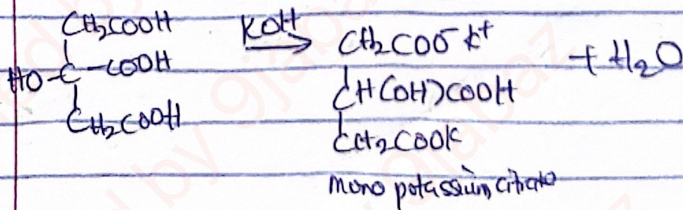 CH₂COOH
HO-C-COOH
CH₂COOH
KOH
CH₂COO⁻K⁺
CH(OH)COOH
CH₂COOK
+ H₂O
mono potassium citrate